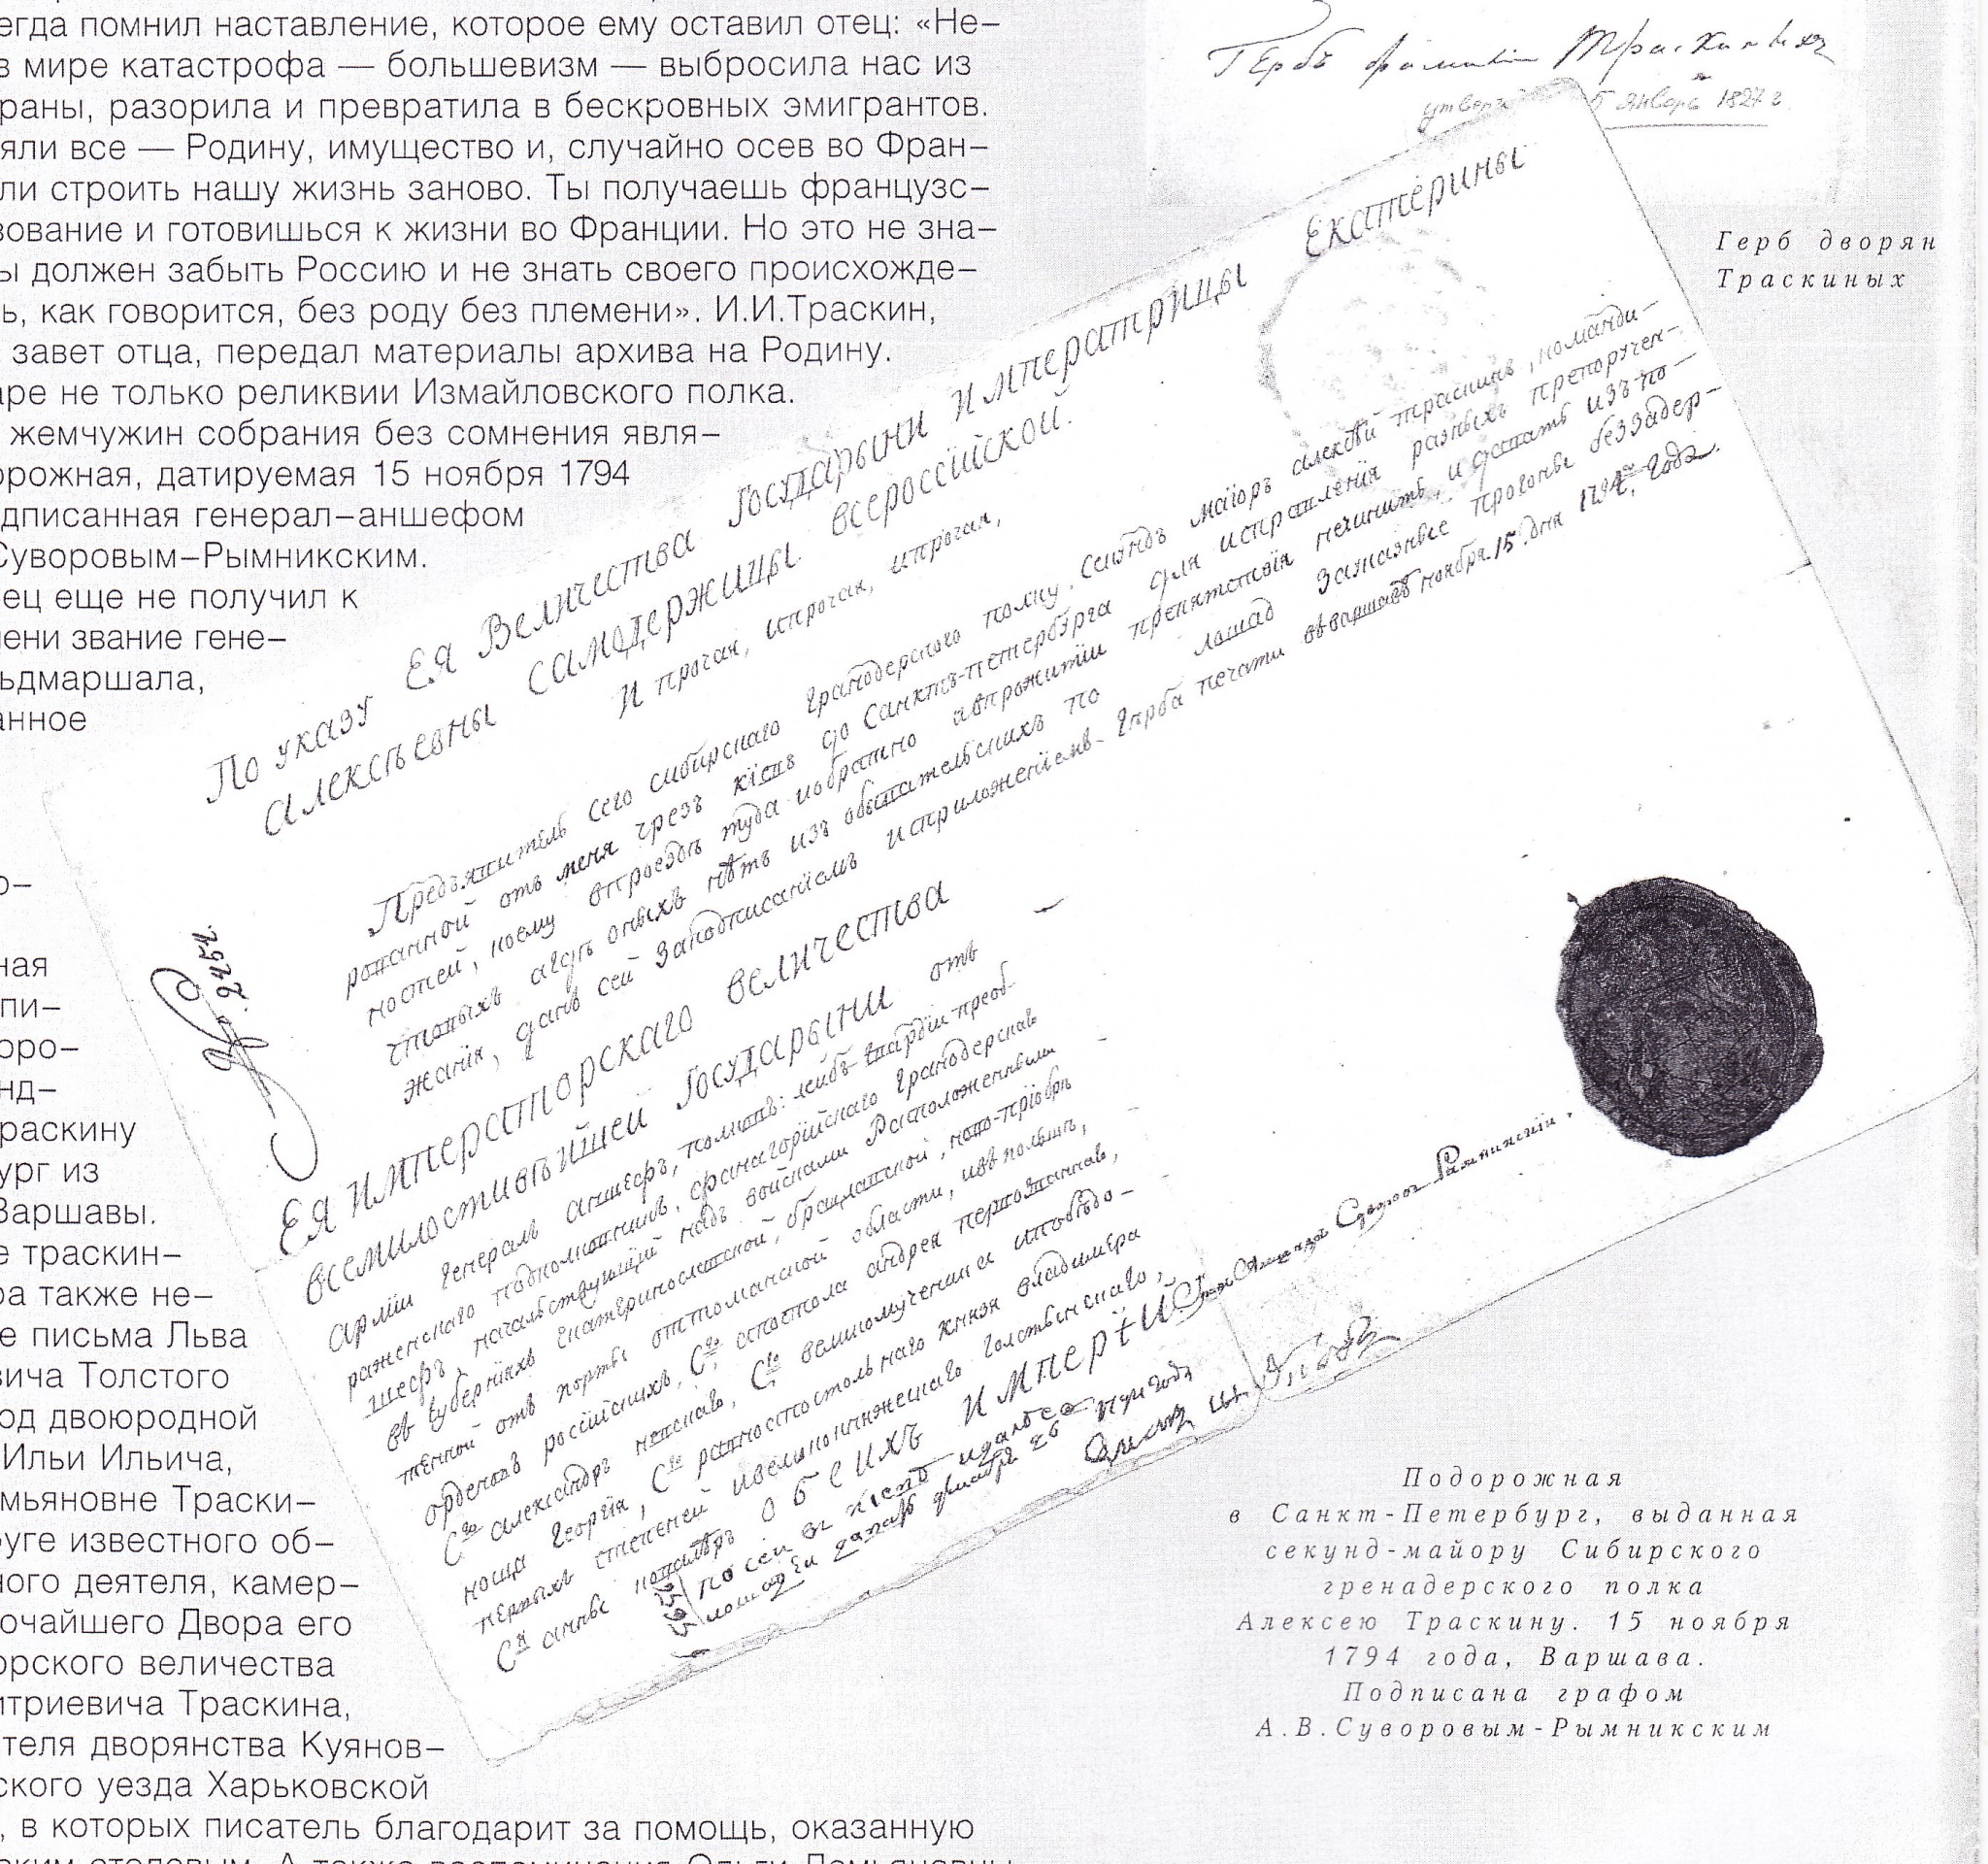 егда помнил наставление, которое ему оставил отец: «Не–
в мире катастрофа — большевизм — выбросила нас из
раны, разорила и превратила в бескровных эмигрантов.
яли все — Родину, имущество и, случайно осев во Фран–
ли строить нашу жизнь заново. Ты получаешь французс–
зование и готовишься к жизни во Франции. Но это не зна–
ы должен забыть Россию и не знать своего происхожде–
ь, как говорится, без роду без племени». И.И.Траскин,
завет отца, передал материалы архива на Родину.
аре не только реликвии Измайловского полка.
жемчужин собрания без сомнения явля–
орожная, датируемая 15 ноября 1794
дписанная генерал–аншефом
Суворовым–Рымникским.
ец еще не получил к
мени звание гене–
ьдмаршала,
анное
о–
ная
пи–
оро–
нд–
раскину
ург из
Варшавы.
е траскин–
ра также не–
е письма Льва
вича Толстого
од двоюродной
Ильи Ильича,
мьяновне Траски–
уге известного об–
ного деятеля, камер–
очайшего Двора его
орского величества
итриевича Траскина,
теля дворянства Куянов–
ского уезда Харьковской
, в которых писатель благодарит за помощь, оказанную
Гербъ фамилiи Траскиныхъ
5 январь 1827 г.
Герб дворян
Траскиных
По указу Ея Величества Государыни Императрицы Екатерины
Алексѣевны Самодержицы всероссiйской.
И прочая, ипрочая, ипрочая,
Предъявитель сего сибирскаго гранодерскаго полку. секундъ маiоръ алексѣй траскинъ, команди–
рованной отъ меня чрезъ кiевъ до Санктъ-петербурга для исправленiя разныхъ препоручен–
ностей, коему впроездѣ туда иобратно впрожитiи препятствiя нечинить, и давать изъ по–
чтовыхъ агдѣ оныхъ нѣтъ изъ обывательскихъ по лошад заказные прогоны беззадер–
жанiя, данъ сей Заподписанiемъ исприложенiемъ герба печати ввваршавѣ ноября 15. дня 1794. года.
№. 2452
Ея Императорскаго величества
всемилостивѣйшей Государыни отъ
армiи генералъ аншефъ, полковъ: лейбъ гвардiи преоб–
раженскаго подполковникъ, фанагорiйскаго гранодерскаго
шефъ, начальствующiй надъ войсками Расположенными
въ губернiяхъ Екатеринославской, брацлавской, ново-прiобрѣ
тенной отъ порты оттоманской области, ивъ польшѣ,
орденовъ россiйскихъ, Сго апостола андрея первозваннаго,
Сго александра невскаго, Сго великомученика ипобѣдо–
носца Георгiя, Сго равноапостольнаго князя владимира
первыхъ степеней ивеликокняжескаго голстинскаго,
Стя анны кавалеръ Обеихъ Имперiй Графъ Александръ Суворовъ Рымникскiй.
Подорожная
в Санкт-Петербург, выданная
секунд-майору Сибирского
гренадерского полка
Алексею Траскину. 15 ноября
1794 года, Варшава.
Подписана графом
А.В.Суворовым-Рымникским